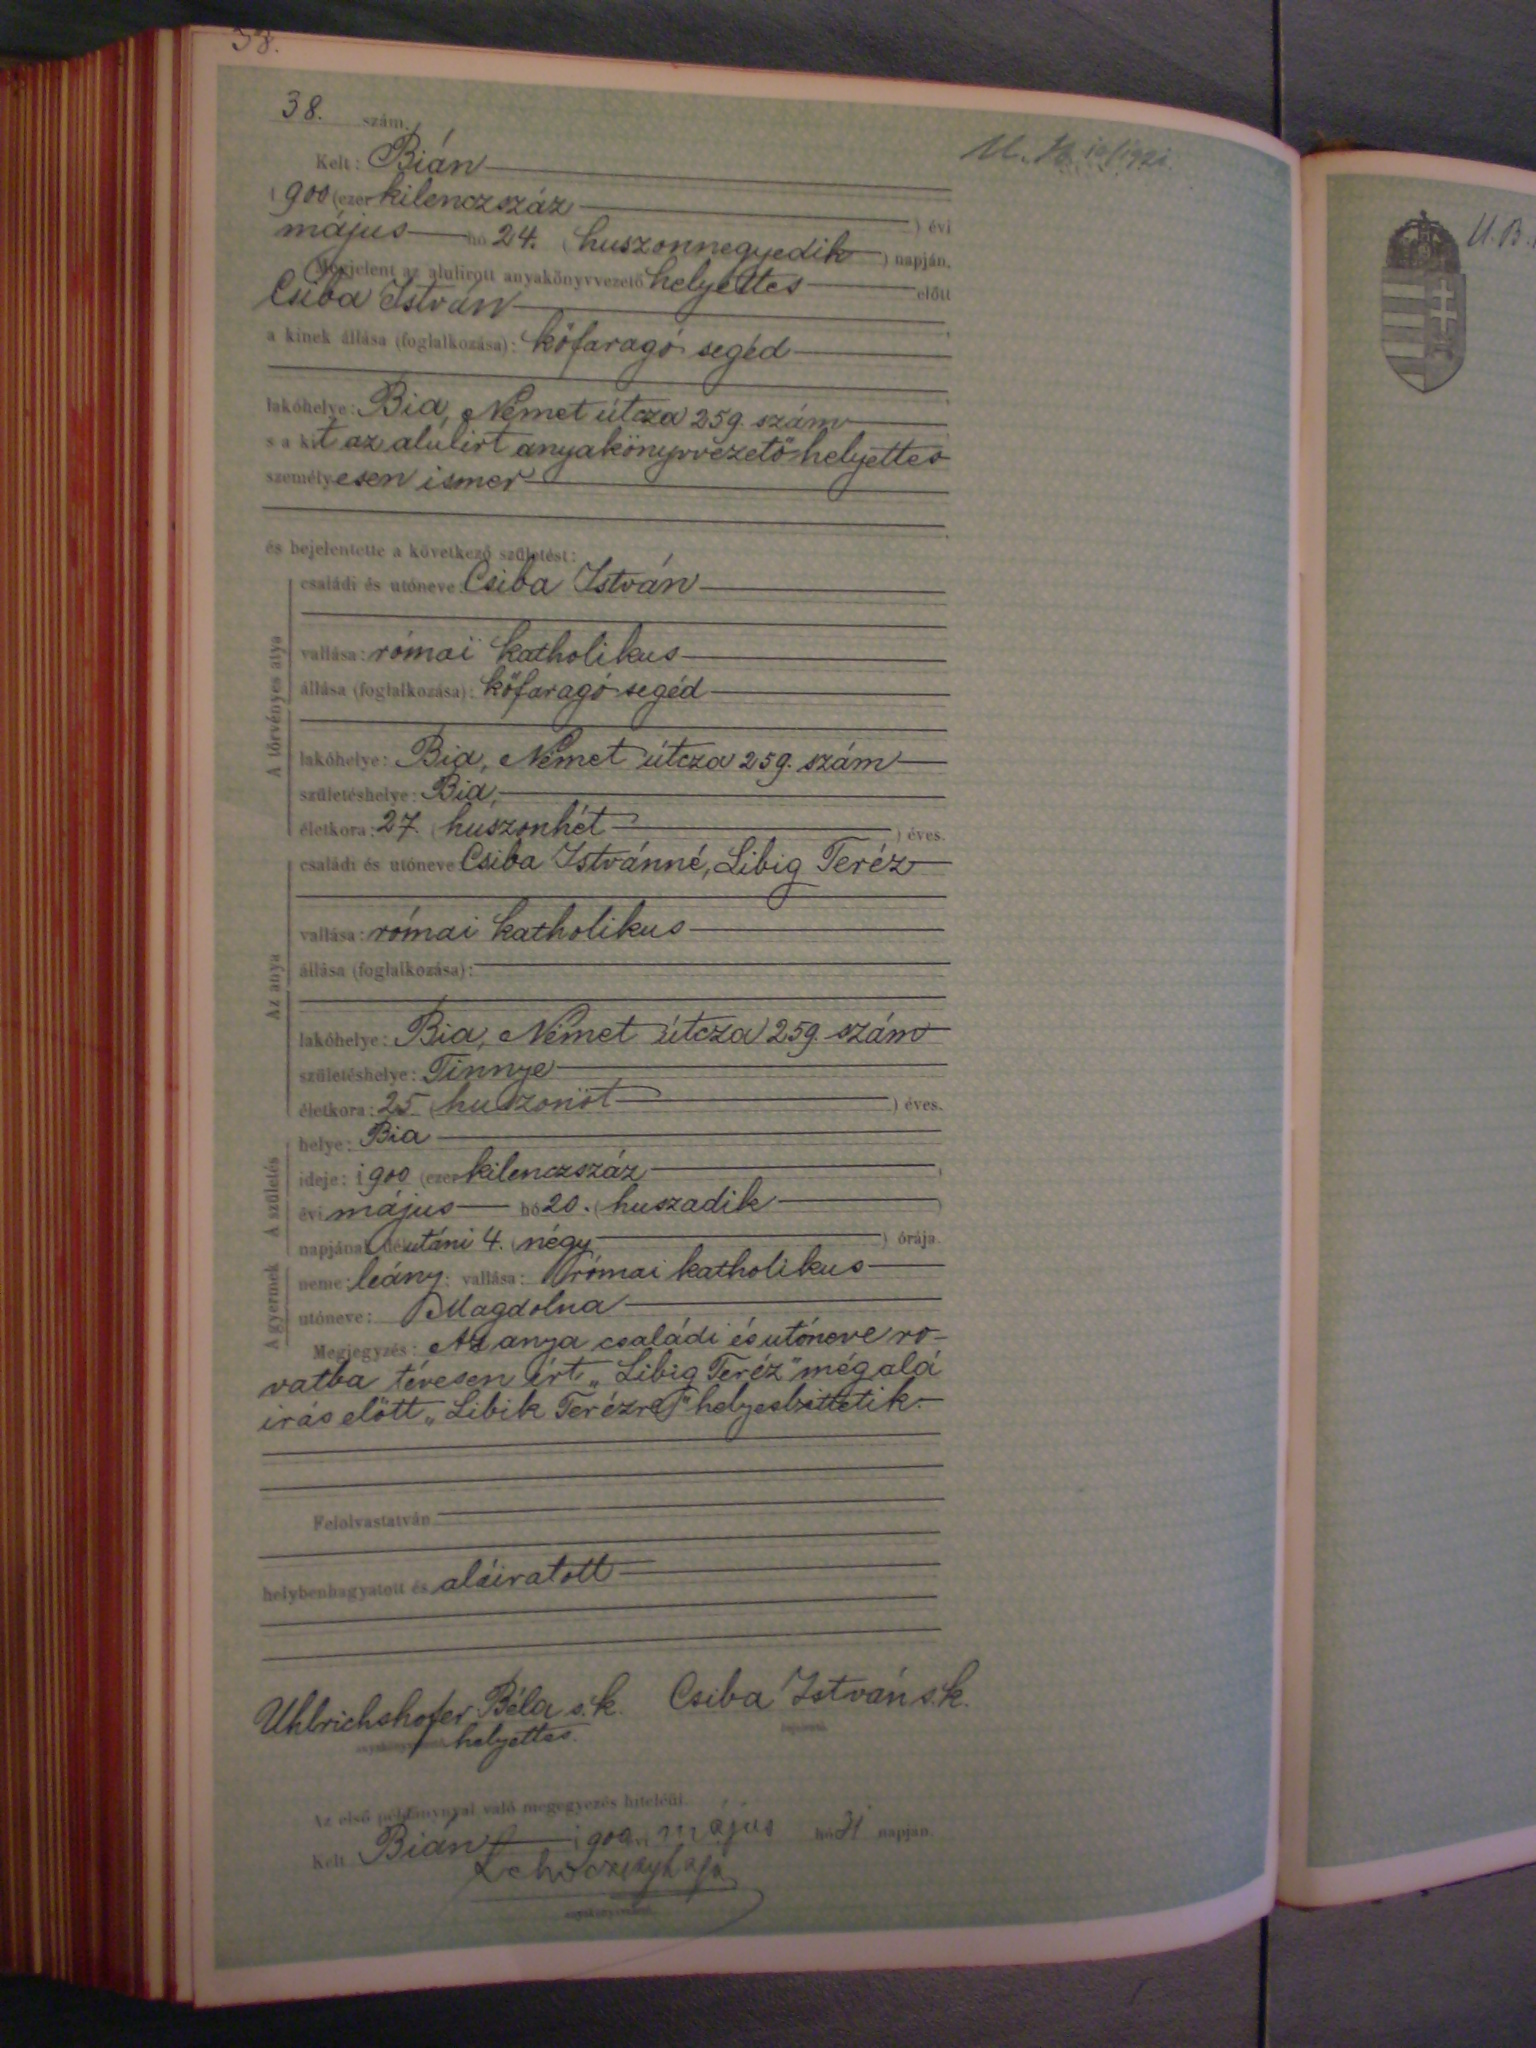 38.
38. szám.
Kelt: Bián
1900 (ezer kilenczszáz ) évi
május hó 24. (huszonnegyedik) napján.
Megjelent az alulirott anyakönyvvezető helyettes előtt
Csiba István
a kinek állása (foglalkozása): kőfaragó segéd
lakóhelye: Bia, Német útcza 259. szám
s a kit az alúlirt anyakönyvvezető helyettes
személyesen ismer
és bejelentette a következő születést:
A törvényes atya
családi és utóneve: Csiba István
vallása: római katholikus
állása (foglalkozása): kőfaragó segéd
lakóhelye: Bia, Német útcza 259. szám
születéshelye: Bia,
életkora: 27. (huszonhét ) éves.
Az anya
családi és utóneve Csiba Istvánné, Libig Teréz
vallása: római katholikus
állása (foglalkozása):
lakóhelye: Bia, Német útcza 259. szám
születéshelye: Tinnye
életkora: 25 (huszonöt ) éves.
A születés
helye: Bia
ideje: 1900 (ezer kilenczszáz
évi május hó 20. (huszadik )
napjának délutáni 4. (négy ) órája.
A gyermek
neme: leány; vallása: római katholikus
utóneve: Magdolna
Megjegyzés: Az anya családi és utóneve ro-
vatba tévesen írt „Libig Teréz" még alá
irás előtt „Libik Terézre" helyesbittetik.
Felolvastatván
helybenhagyatott és aláiratott
Uhlrichshofer Béla s.k. Csiba István s.k.
helyettes.
Az első példánynyal való megegyezés hiteléül.
Kelt Bián 1900 évi május hó 31 napján.
U. B.